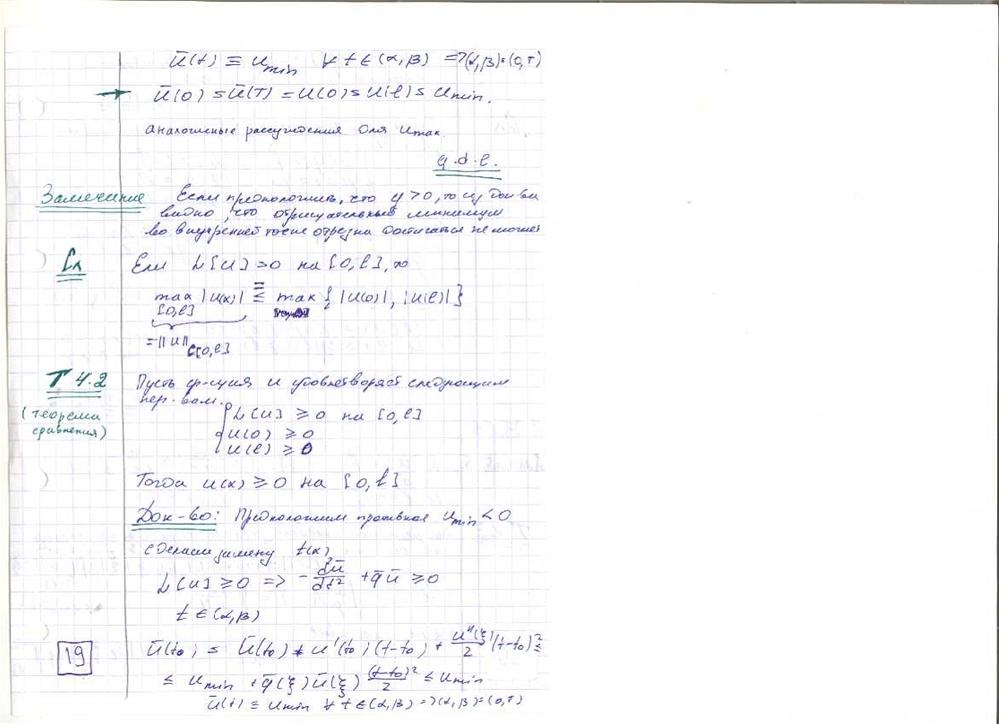 ū(t) ≡ u_min ∀ t ∈ (α, β) => (α, β) = (0, T)
→ ū(0) = ū(T) = u(0) = u(l) = u_min.
аналогичные рассуждения для u_max.
q.d.e.
Замечание Если предположить, что q > 0, то из док-ва
видно, что отрицательный минимум
во внутренней точке отрезка достигаться не может
Сл Если L[u] = 0 на [0, l], то
max |u(x)| = max { |u(0)|, |u(l)| }
[0,l]
= ||u||_C[0,l]
Т 4.2 Пусть ф-ция u удовлетворяет следующим
(теорема нер-вам.
сравнения) { L[u] ≥ 0 на [0, l]
u(0) ≥ 0
u(l) ≥ 0
Тогда u(x) ≥ 0 на [0, l]
Док-во: Предположим противное u_min < 0
сделаем замену t(x)
L[u] ≥ 0 => - d²ū/dt² + q̄ū ≥ 0
t ∈ (α, β)
19 ū(t₀) = ū(t₀) + u'(t₀)(t-t₀) + u''(ξ)/2 (t-t₀)² ≤
≤ u_min + q̄(ξ)ū(ξ) (t-t₀)²/2 ≤ u_min
ū(t) ≡ u_min ∀ t ∈ (α, β) => (α, β) = (0, T)